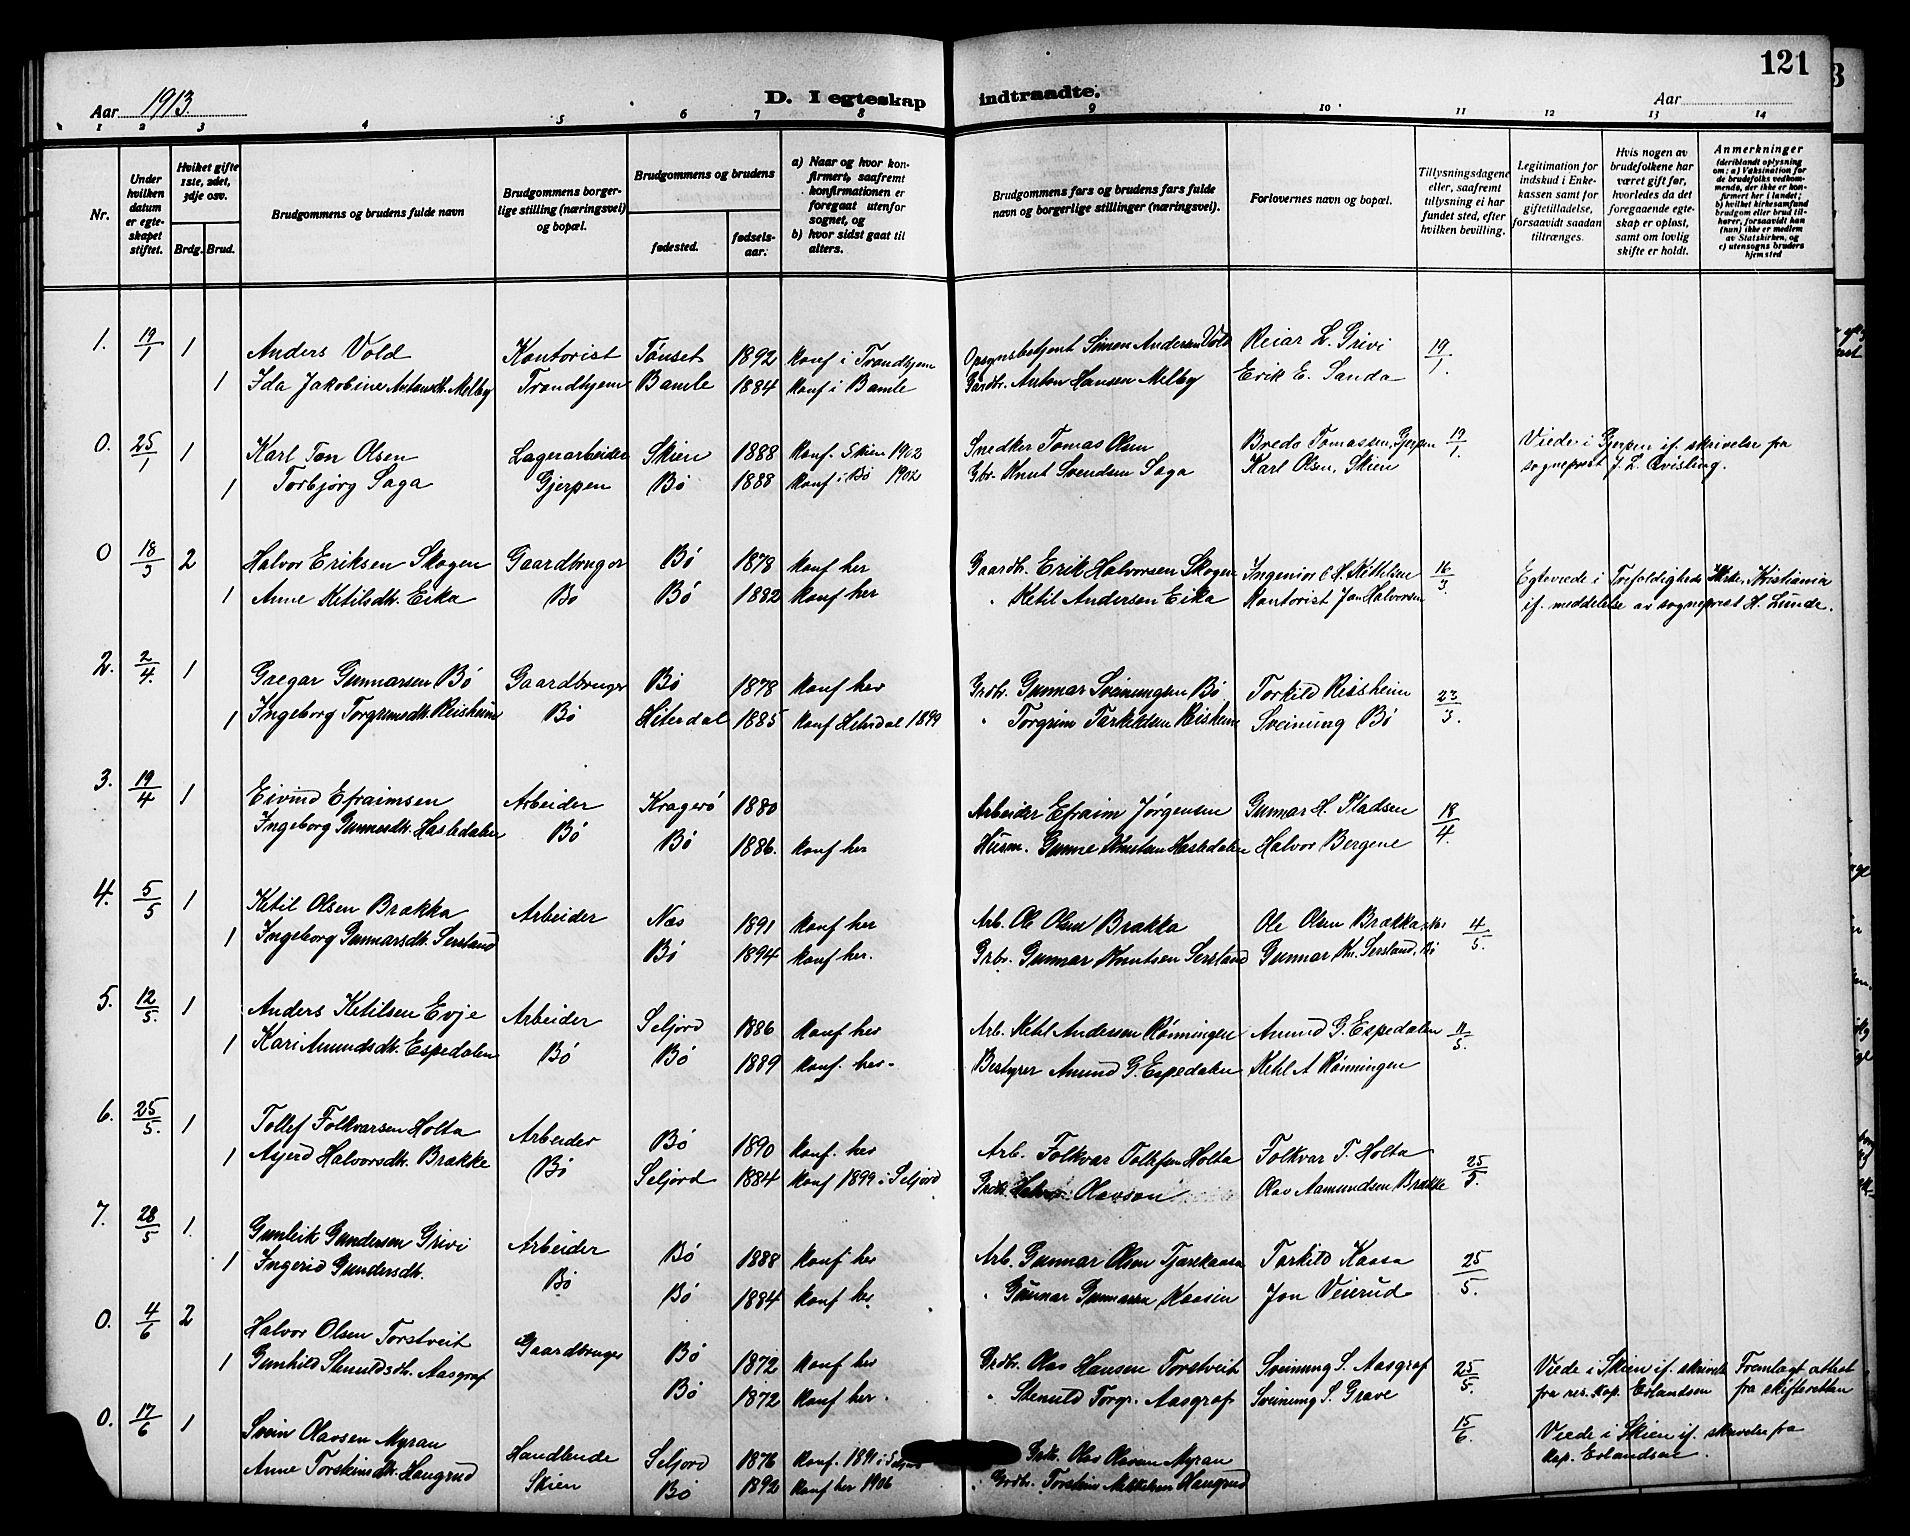 121
Aar 1913.
D. I egteskap indtraadte.
Aar
1 2 3 4 5 6 7 8 9 10 11 12 13 14
Nr.
Under hvilken datum er egteskapet stiftet.
Hviket gifte 1ste, 2det, 3dje osv.
Brdg. Brud.
Brudgommens og brudens fulde navn
Brudgommens borgerlige stilling (næringsvei) og bopæl.
Brudgommens og brudens
fødested.
fødselsaar.
a) Naar og hvor konfirmert, saafremt konfirmationen er foregaat utenfor sognet, og
b) hvor sidst gaat til alters.
Brudgommens fars og brudens fars fulde navn og borgerlige stillinger (næringsvei).
Forlovernes navn og bopæl.
Tillysningsdagene eller, saafremt tillysning ei har fundet sted, efter hvilken bevilling.
Legitimation for indskud i Enkekassen samt for giftetilladelse, forsaavidt saadan tiltrænges.
Hvis nogen av brudefolkene har været gift før, hvorledes da det foregaaende egteskap er opløst, samt om lovlig skifte er holdt.
Anmerkninger (deriblandt oplysning om: a) Vaksination for de brudefolks vedkommende, der ikke er konfirmert her i landet; b) hvilket kirkesamfund brudgom eller brud tilhører, forsaavidt han (hun) ikke er medlem av Statskirken, og c) utensogns bruders hjemsted
1. 19/1 1 Anders Vold Kontorist Tønset 1892 Konf i Trondhjem Opsynsbetjent Simon Andersen Vold Reiar L. Grivi 19/1.
1 Ida Jakobine Antonsdt. Melby Trondhjem Bamle 1884 Konf i Bamle Gardbr. Anton Hansen Melby Erik E. Sanda
0. 25/1 1 Karl Ton Olsen Lagerarbeider Skien 1888 Konf. Skien 1902 Snedker Tomas Olsen Bredo Tomassen, Gjerpen 19/1. Viede i Gjerpen if. skrivelse fra
1 Torbjørg Saga Gjerpen Bø 1888 Konf i Bø 1902 Gbr. Knut Svendsen Saga Karl Olsen, Skien sogneprest J. L. Qvisling.
0 18/3 2 Halvor Eriksen Skogen Gaardbruger Bø 1878 Konf her Gaardbr. Erik Halvorsen Skogen Ingeniør C. H. Kittelsen 16/3. Egteviede i Trefoldigheds Kirke, Kristiania
1 Anne Ketilsdt. Eika Bø Bø 1882 Konf her " Ketil Andersen Eika Kontorist Jon Halvorsen if. meddelelse av sogneprest H. Lunde.
2. 2/4. 1 Gregar Gunnarsen Bø Gaardbruger Bø 1878 Konf her Grdbr. Gunnar Sveinungsen Bø Torkild Reisheim 23/3.
1 Ingeborg Torgrimsdt. Reisheim Bø Hiterdal 1885 Konf Hiterdal 1899 " Torgrim Tarkildsen Reisheim Sveinung Bø
3. 19/4 1 Eivind Efraimsen Arbeider Kragerø 1880 Arbeider Efraim Jørgensen Gunnar H. Pladsen 18/4.
Ingeborg Gunnesdt. Hasledalen Bø Bø 1886. Konf her Husm. Gunne Knutsen Hasledalen Halvor Bergene
4. 5/5 1 Ketil Olsen Brækka Arbeider Næs 1891 Konf her Arb. Ole Olsen Brækka Ole Olsen Brækka, Næs 4/5.
1 Ingeborg Gunnarsdt. Sersland Bø 1894 Konf her. Grbr. Gunnar Knutsen Sersland Gunnar Kn. Sersland, Bø
5. 12/5. 1 Anders Ketilsen Evje Arbeider Seljord 1886 Konf her Arb. Ketil Andersen Rønningen Amund G. Espedalen 11/5.
1 Kari Amundsdt. Espedalen Bø Bø 1889 Konf. her. Bestyrer Amund G. Espedalen Ketil A Rønningen
6. 25/5. 1 Tollef Folkvarsen Holta Arbeider Bø 1890 Konf. her Arb. Folkvar Tollefsen Holta Folkvar T. Holta 25/5.
1 Asjerd Halvorsdt. Brække Bø Seljord 1884 Konf 1899 i Seljord Grdbr. Halvor Olavsen Olav Aamundsen Brække
7. 28/5 1. Gunleik Gundersen Grivi Arbeider Bø 1888 Konf her Arb. Gunnar Olsen Tjørekaasa Tarkild Kaasa 25/5.
1 Ingerid Gundersdt. Bø Bø 1884 Konf her. " Gunnar Gunnarsen Kaasin Jon Veierud
0. 4/6 2 Halvor Olsen Torstveit Gaardbruger Bø 1872 Konf her Grdbr. Olav Hansen Torstveit Sveinung S. Aasgraf 25/5. Viede i Skien if. skrivelse Fremlagt attest
1 Gunhild Stenuldsdt. Aasgraf Bø 1872 Konf her. " Stenuld Torgr. Aasgraf Sveinung S. Grave fra res. kap. Erlandsen fra skifteretten
0. 17/6 1 Svein Olavsen Myran Handlende Seljord 1876 Konf. 1891 i Seljord Grdb. Olav Olavsen Myran 15/6. Viede i Skien if. skrivelse fra
Anne Torsteinsdt. Haugrud Skien Bø 1892 Konf her 1906 Grdbr. Torstein Mikkelsen Haugrud Kap. Erlandsen.